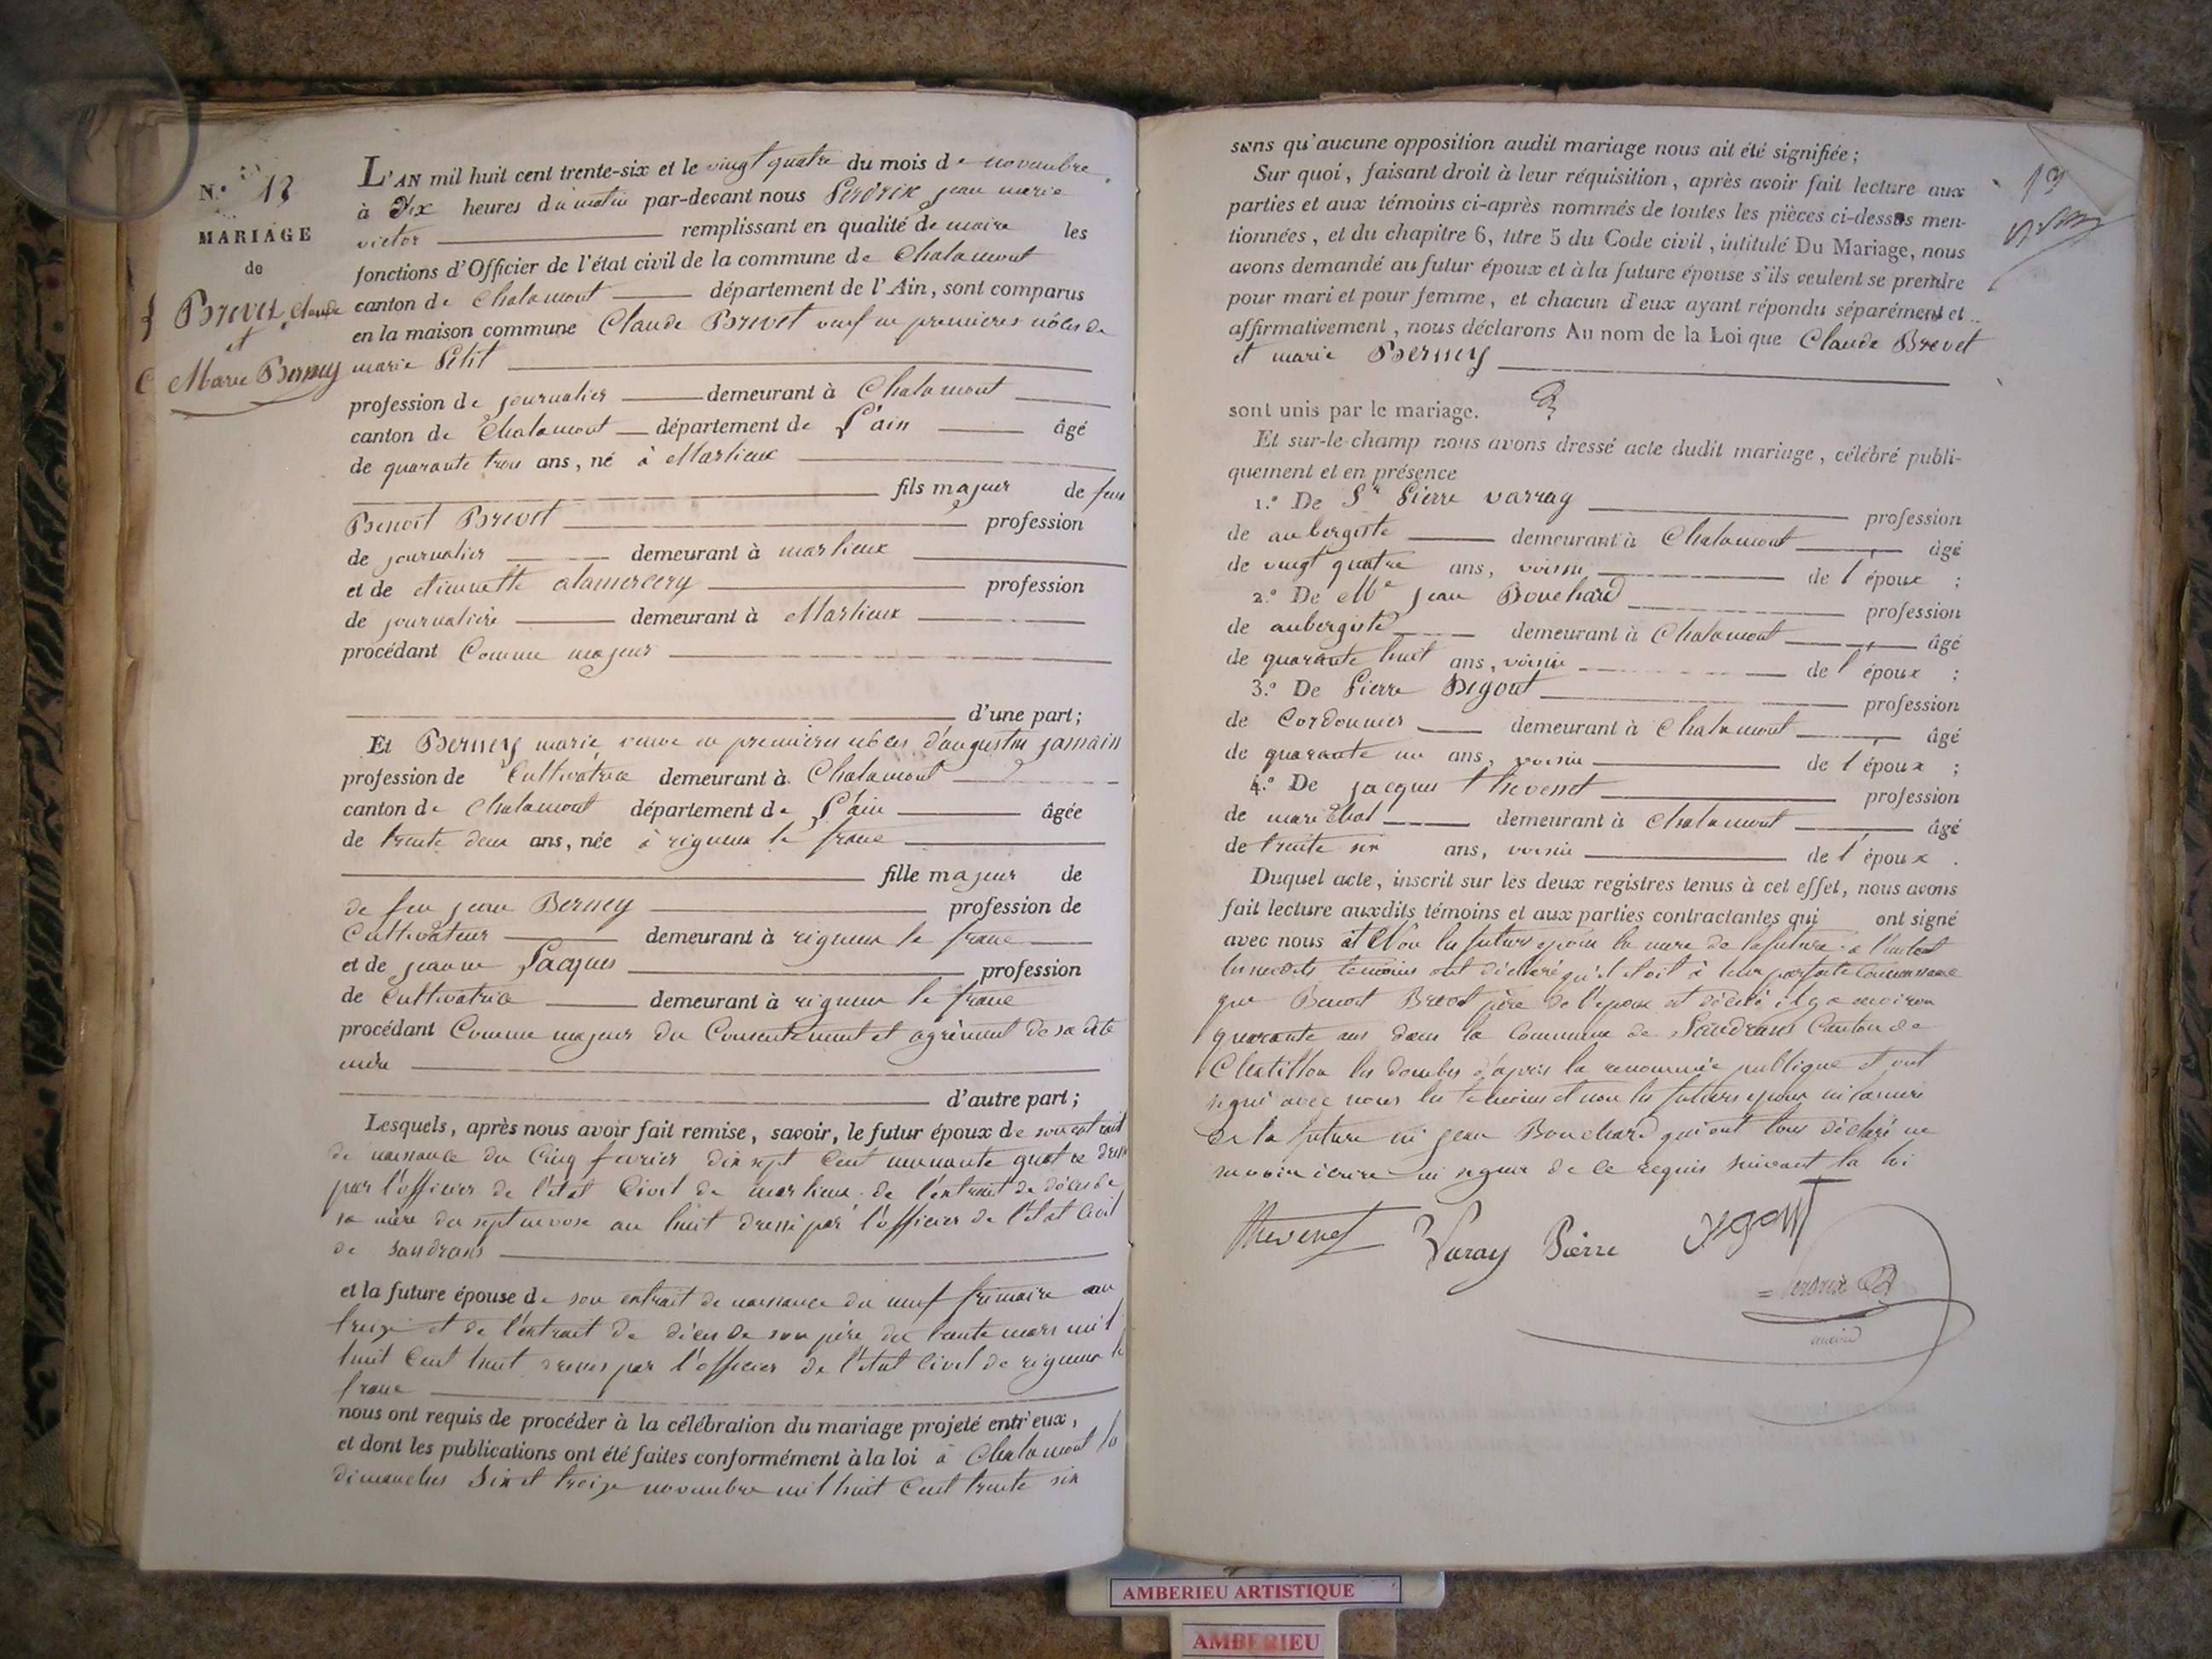 N.° 13
MARIAGE
de
Brevet Claude
et
Marie Berney
L'AN mil huit cent trente-six et le vingt quatre du mois de novembre
à Dix heures du matin par-devant nous Perdrix jean marie
victor remplissant en qualité de maire les
fonctions d'Officier de l'état civil de la commune de Chalamont
canton de Chalamont département de l'Ain, sont comparus
en la maison commune Claude Brevet veuf en premières nôces de
marie Petit
profession de journalier demeurant à Chalamont
canton de Chalamont département de L'ain âgé
de quarante trois ans, né à Marlieux
fils majeur de feu
Benoit Brevet profession
de journalier demeurant à marlieux
et de etiennette alamercery profession
de journalière demeurant à Marlieux
procédant Comme majeur
d'une part;
Et Berney marie veuve en premières nôces d'augustin jamain
profession de Cultivatrice demeurant à Chalamont
canton de Chalamont département de L'ain âgée
de trente deux ans, née à rigneux le franc
fille majeur de
de feu jean Berney profession de
Cultivateur demeurant à rigneux le franc
et de jeanne Jacques profession
de Cultivatrice demeurant à rigneux le franc
procédant Comme majeur du Consentement et agrèment de sa dite
mère
d'autre part;
Lesquels, après nous avoir fait remise, savoir, le futur époux de son extrait
de naissance du Cinq fevrier dix sept Cent nonante quatre dressé
par l'officier de l'état Civil de marlieux de l'extrait de décès de
sa mère du sept nivose an huit dressé par l'officier de l'état Civil
de Sandrans
et la future épouse de son extrait de naissance du neuf frimaire an
treize et de l'extrait de décès de son père du trente mars mil
huit Cent huit dressés par l'officier de l'état Civil de rigneux le
franc
nous ont requis de procéder à la célébration du mariage projeté entr'eux,
et dont les publications ont été faites conformément à la loi à Chalamont les
dimanches Six et treize novembre mil huit Cent trente six
sans qu'aucune opposition audit mariage nous ait été signifiée;
Sur quoi, faisant droit à leur réquisition, après avoir fait lecture aux
parties et aux témoins ci-après nommés de toutes les pièces ci-dessus men-
tionnées, et du chapitre 6, titre 5 du Code civil, intitulé Du Mariage, nous
avons demandé au futur époux et à la future épouse s'ils veulent se prendre
pour mari et pour femme, et chacun d'eux ayant répondu séparément et
affirmativement, nous déclarons Au nom de la Loi que Claude Brevet
et marie Berney
sont unis par le mariage.
Et sur-le-champ nous avons dressé acte dudit mariage, célébré publi-
quement et en présence
1.° De Sr Pierre varray profession
de aubergiste demeurant à Chalamont âgé
de vingt quatre ans, voisin de l'époux ;
2.° De Me jean Bouchard profession
de aubergiste demeurant à Chalamont âgé
de quarante huit ans, voisin de l'époux ;
3.° De Pierre Degout profession
de Cordonnier demeurant à Chalamont âgé
de quarante un ans, voisin de l'époux ;
4.° De jacques thevenet profession
de maréchal demeurant à Chalamont âgé
de trente six ans, voisin de l'époux .
Duquel acte, inscrit sur les deux registres tenus à cet effet, nous avons
fait lecture auxdits témoins et aux parties contractantes qui ont signé
avec nous les futurs époux la mère de la future
lesuedits temoins ont déclaré qu'il etoit à leur parfaite Connoissance
que Benoit Brevet père de l'époux est décédé il y a environ
quarante ans dans la Commune de Sandrans Canton de
Chatillon les dombes d'après la renommée publique et ont
signé avec nous les temoins et non les futurs époux ni la mère
de la future ni jean Bouchard qui ont tous déclaré ne
savoir écrire ni signer de ce requis suivant la loi
Thevenet Varay Pierre Degout
Perdrix
maire
13
AMBERIEU ARTISTIQUE
AMBERIEU